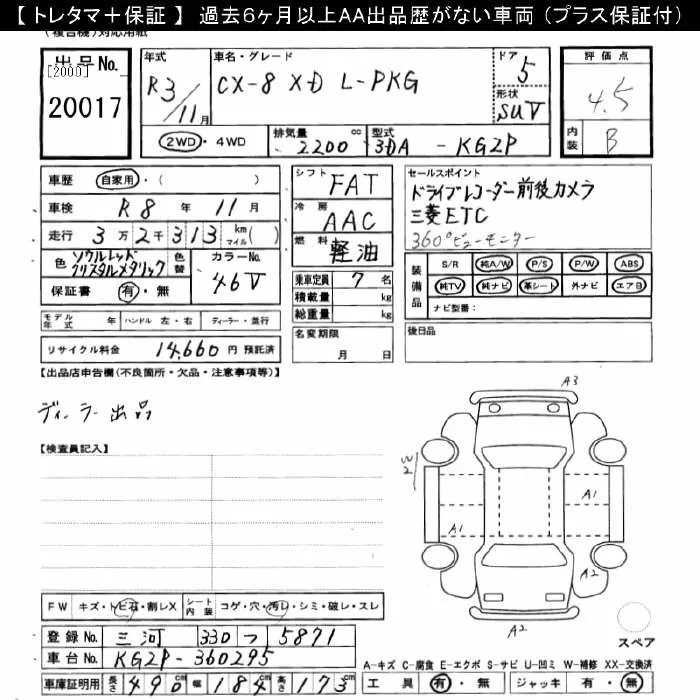 【 トレタマ＋保証 】 過去6ヶ月以上AA出品歴がない車両（プラス保証付）
(複合機)対応用紙
出品No. [2000] 20017
年式 R3/11月
車名・グレード CX-8 XD L-PKG
ドア 5
形状 SUV
評価点 4.5
内装 B
2WD・4WD
排気量 2200 cc
型式 3DA - KG2P
車歴 自家用・( )
車検 R8 年 11 月
走行 3万2千313 km(マイル)( )
色 ソウルレッドクリスタルメタリック
色替
カラーNo. 46V
保証書 有・無
シフト FAT
冷房 AAC
燃料 軽油
乗車定員 7 名
積載量 kg
総重量 kg
名変期限 月 日
セールスポイント
ドライブレコーダー前後カメラ
三菱ETC
360°ビューモニター
装備品
S/R 純A/W P/S P/W ABS
純TV 純ナビ 革シート 外ナビ エアB
ナビ型番：
後日品
モデル年式 年 ハンドル 左・右 ディーラー・並行
リサイクル料金 14,660 円 預託済
【出品店申告欄(不良箇所・欠品・注意事項等)】
ディーラー出品
【検査員記入】
A3
W2
A1
A1
A2
A2
スペア
FW キズ・トビ石・割レX
シート内装 コゲ・穴・汚レ・シミ・破レ・スレ
登録No. 三河 330 つ 5871
車台No. KG2P-360295
車庫証明用 長さ 490 cm 幅 184 cm 高さ 173 cm
A-キズ C-腐食 E-エクボ S-サビ U-凹ミ W-補修 XX-交換済
工具 有・無 ジャッキ 有・無